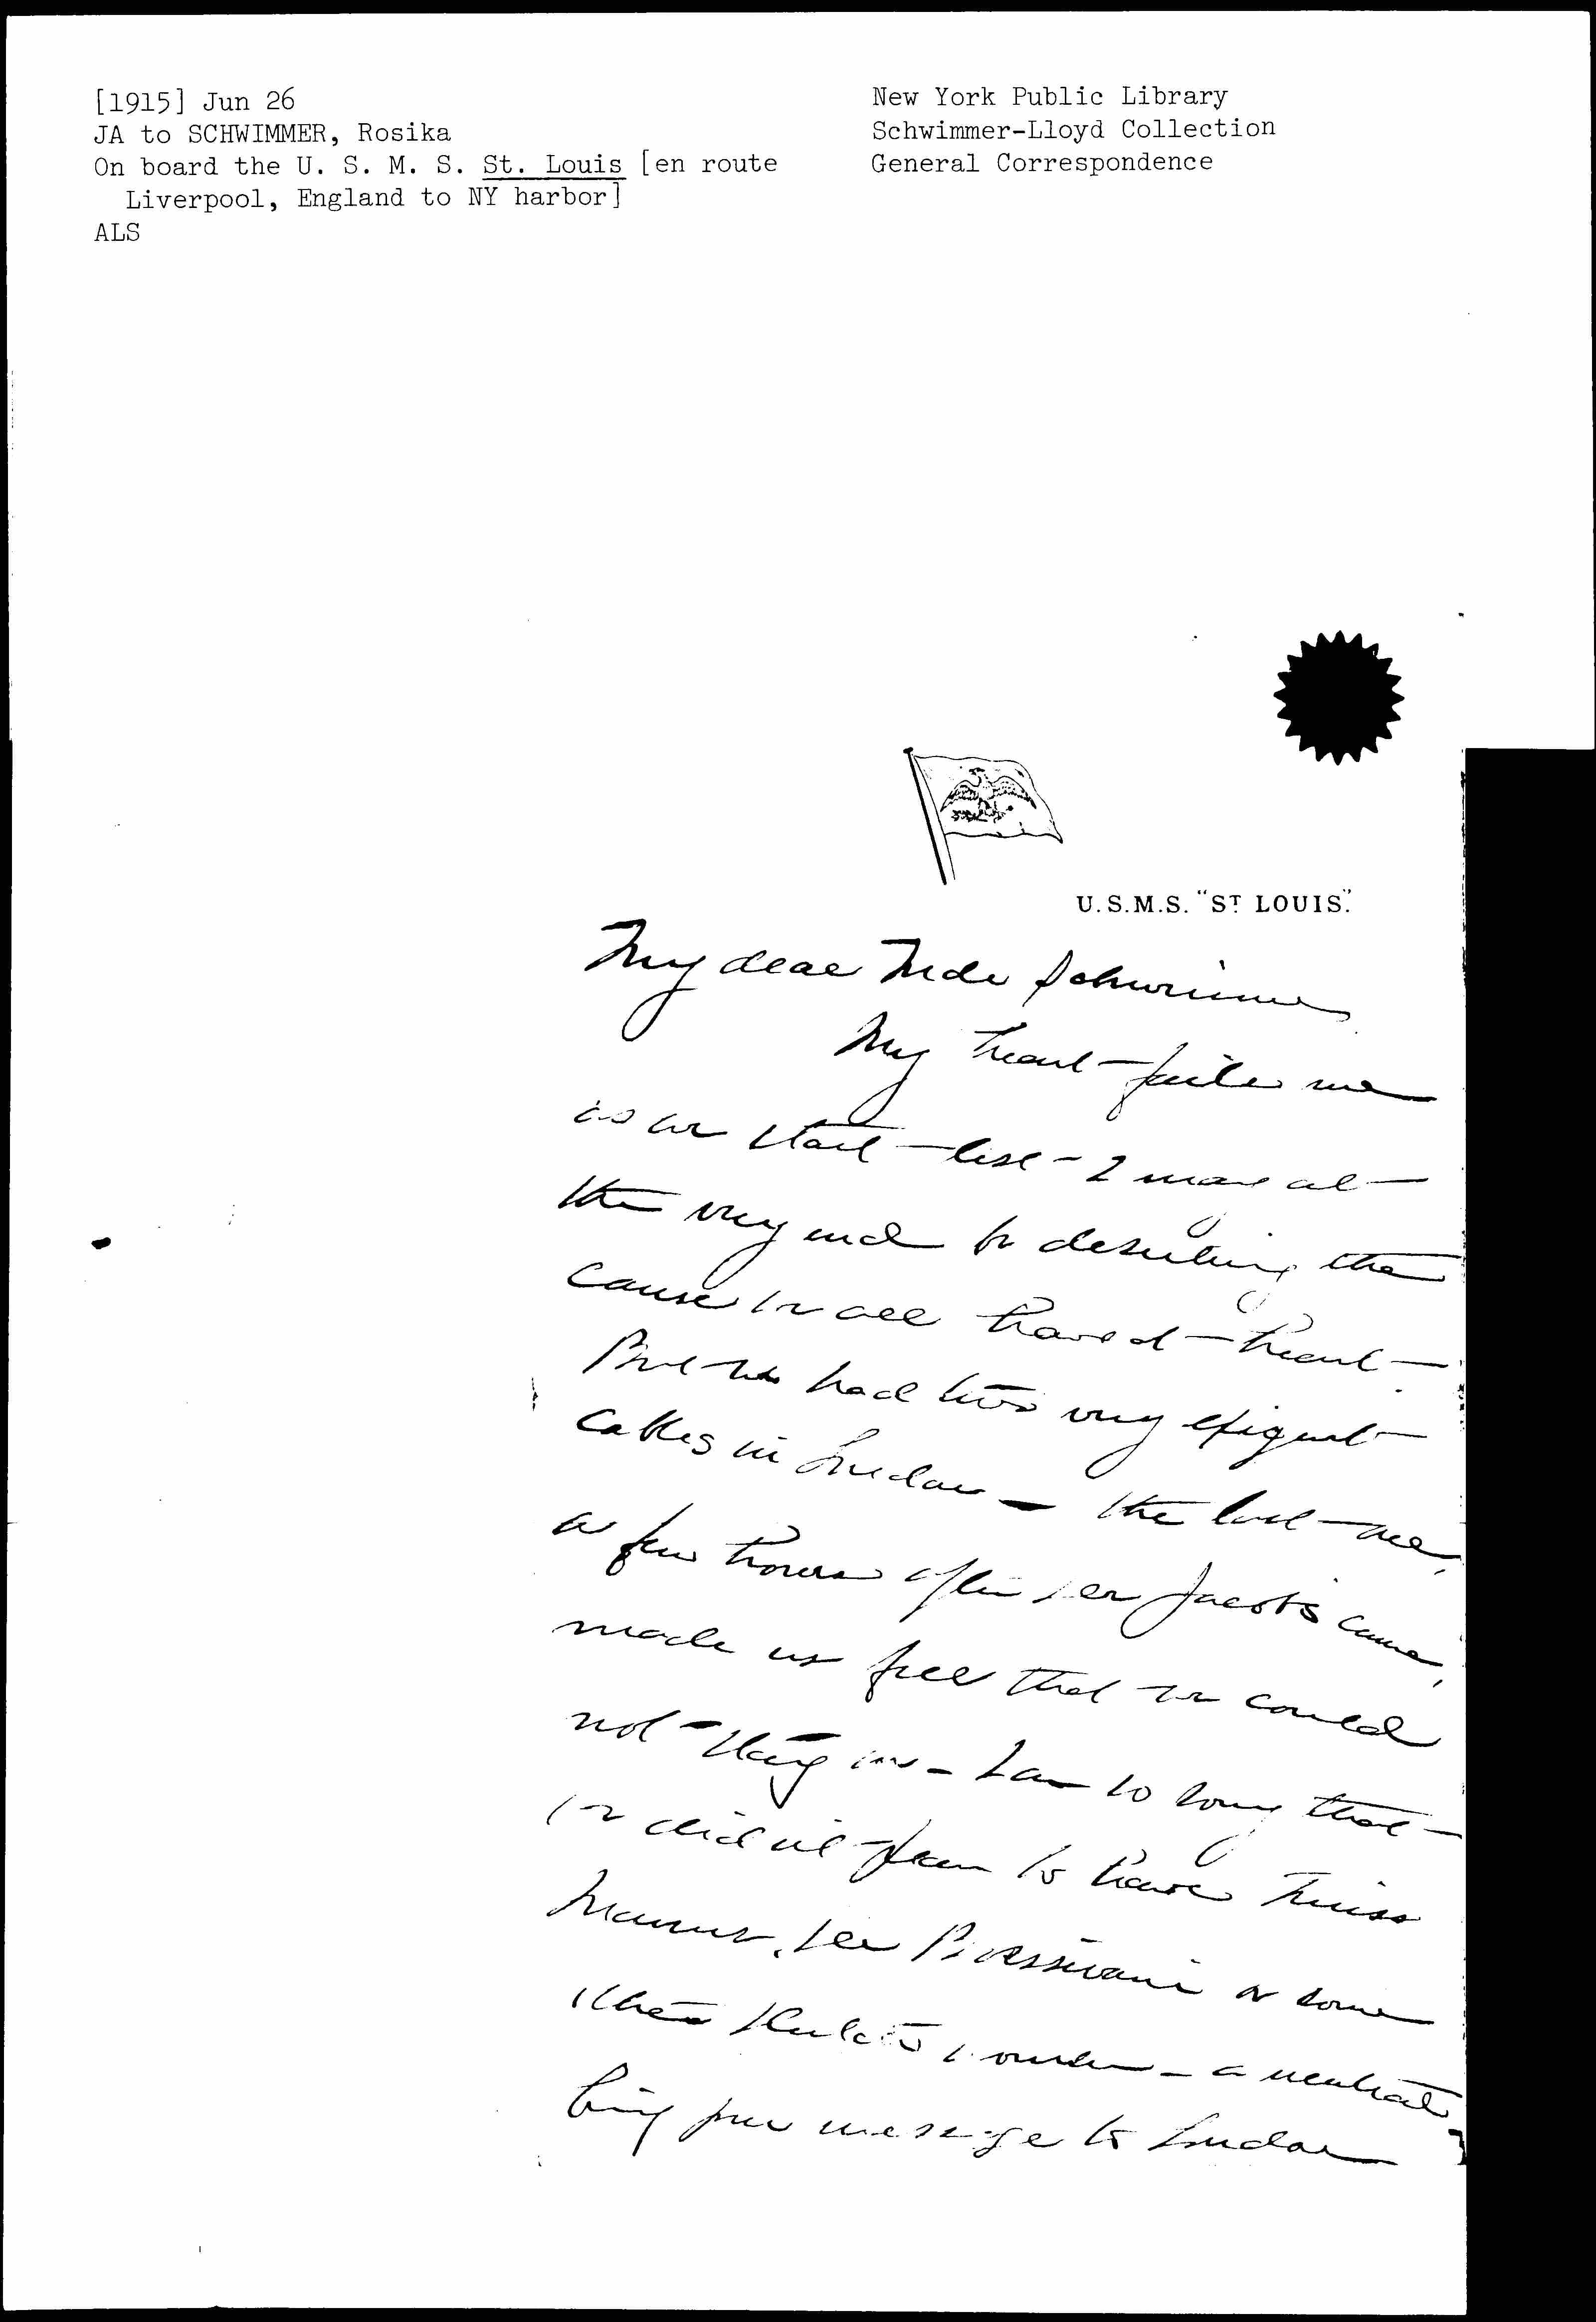 [1915] Jun 26
JA to SCHWIMMER, Rosika
On board the U. S. M. S. St. Louis [en route
Liverpool, England to NY harbor]
ALS
New York Public Library
Schwimmer-Lloyd Collection
General Correspondence
U.S.M.S. "ST LOUIS".
My dear Mde Schwimmer
My heart fails me
as we start lest I may at
the very end be deserting the
cause we all have at heart
But we had two very exigent
cables in London – the last one,
a few hours after Jacobs came,
made us feel that we could
not stay on – I am so sorry that
we did not plan to have Miss
Manus, or some
other woman – a neutral
bring your message to London